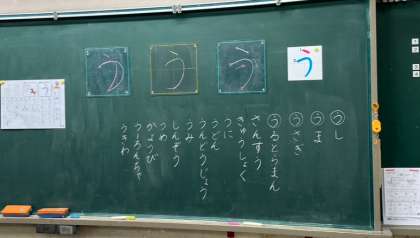 う
う
う
う
うし
うま
うさぎ
うるとらまん
さんすう
きゅうしょく
うに
うどん
うんどうじょう
うみ
しんぞう
うめ
かようび
うーろんちゃ
うきわ